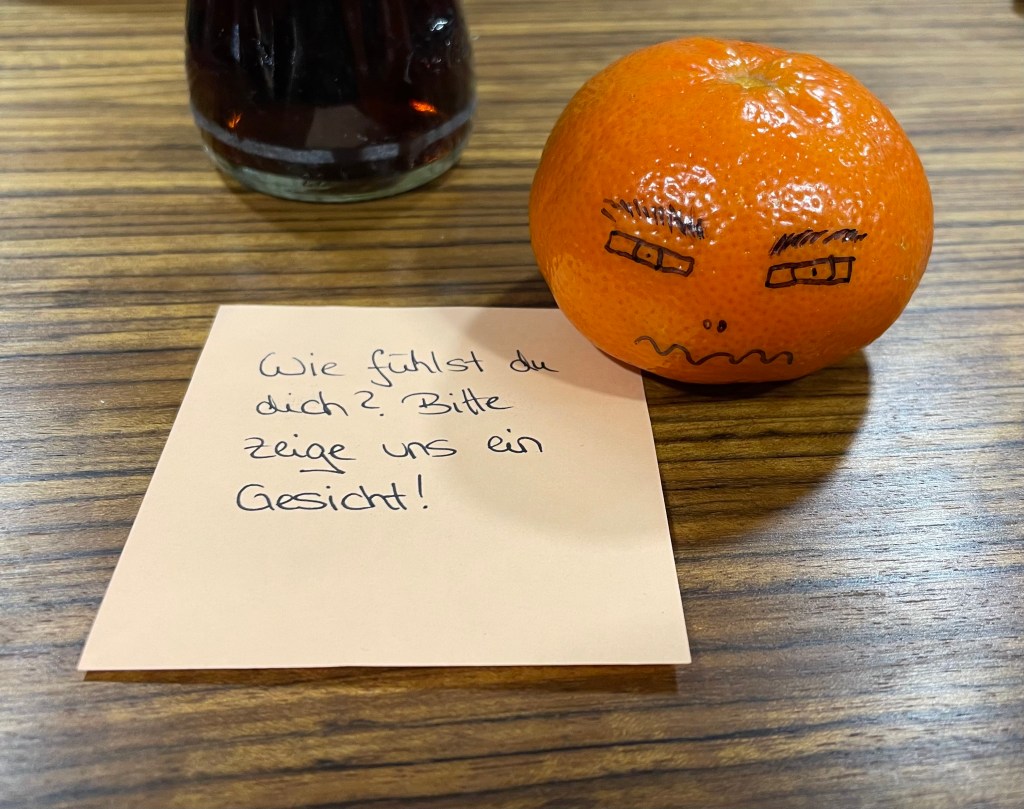 Wie fühlst du
dich? Bitte
zeige uns ein
Gesicht!